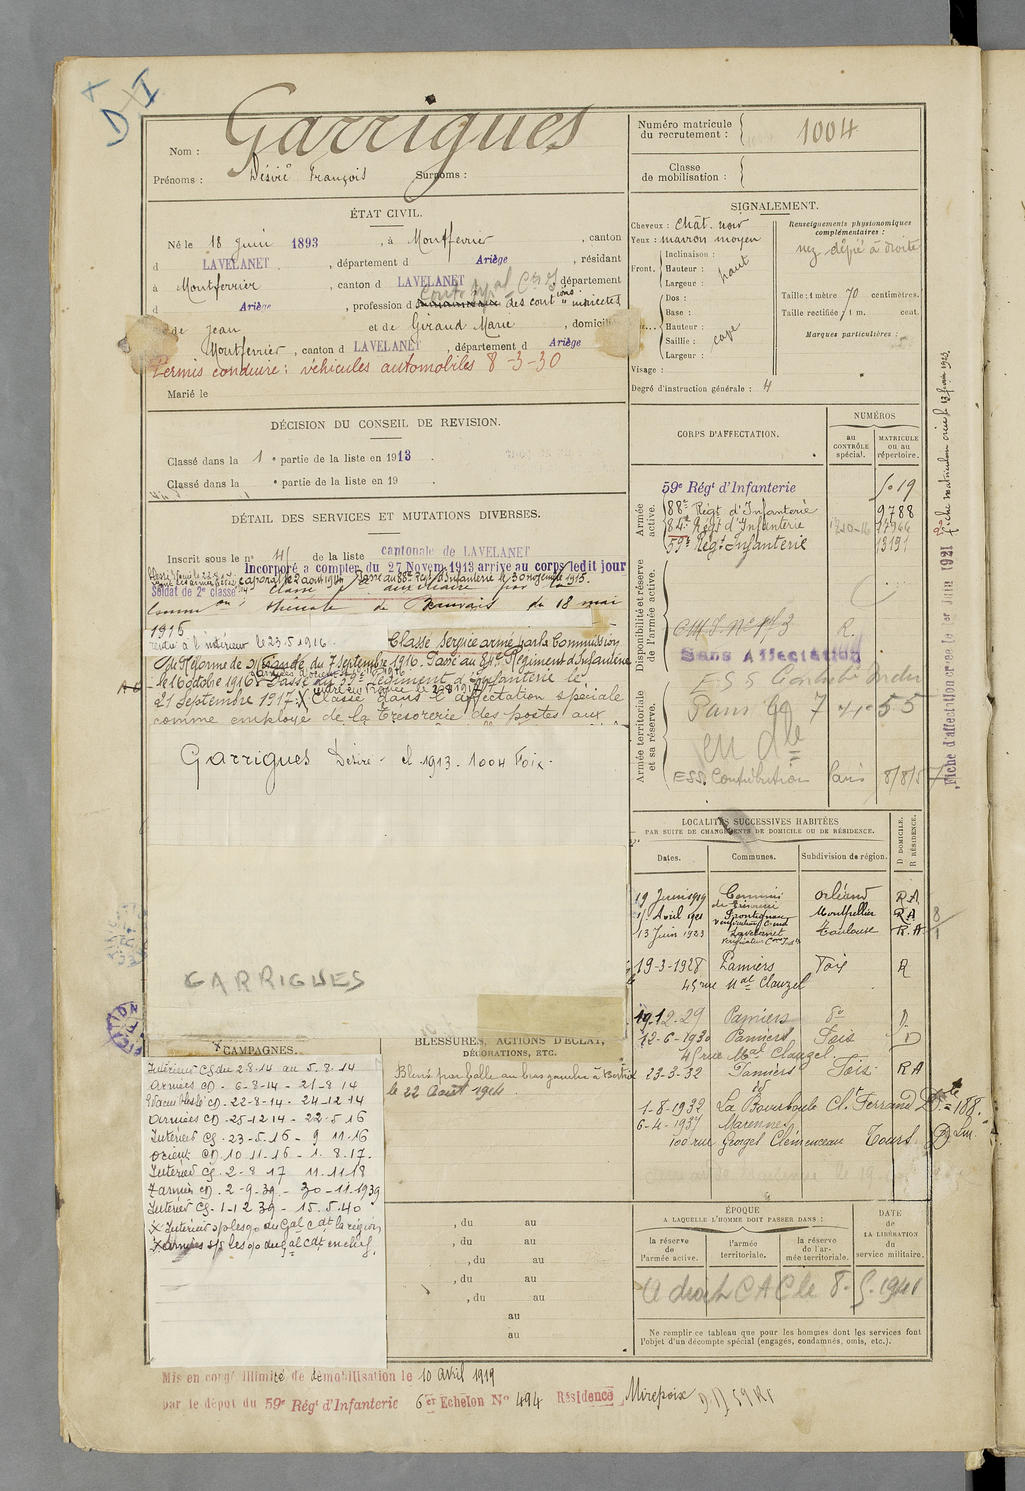 D I
Nom : Garrigues
Prénoms : Désiré François Surnoms :
Numéro matricule du recrutement : 1004
Classe de mobilisation :
ÉTAT CIVIL.
Né le 18 Juin 1893, à Montferrier, canton
d LAVELANET, département d Ariège, résidant
à Montferrier, canton d LAVELANET, département
d Ariège, profession d des cont ions indirectes
de Jean et de Giraud Marie, domicilié
Montferrier, canton d LAVELANET, département d Ariège
Permis conduire : véhicules automobiles 8-3-30
Marié le
SIGNALEMENT.
Cheveux : chât. noir
Yeux : marron moyen
Front. Inclinaison :
Hauteur : haut
Largeur :
Dos :
Base :
Hauteur :
Saillie : cape
Largeur :
Visage :
Degré d'instruction générale : 4
Renseignements physionomiques complémentaires :
nez dévié à droite
Taille : 1 mètre 70 centimètres.
Taille rectifiée : 1 m. cent.
Marques particulières :
DÉCISION DU CONSEIL DE REVISION.
Classé dans la 1e partie de la liste en 1913.
Classé dans la e partie de la liste en 19 .
DÉTAIL DES SERVICES ET MUTATIONS DIVERSES.
Inscrit sous le n° 41 de la liste cantonale de LAVELANET
Incorporé à compter du 27 Novem. 1913 arrivé au corps ledit jour
Soldat de 2e classe
caporal le 2 août 1914 Passé au 88e Régt d'Infanterie le 30 novembre 1915.
Classé Sce auxiliaire par la
Common spéciale de Beauvais du 18 mai
1915
rentré à l'intérieur le 23.5.1916. Classé service armé par la Commission
de Réforme de du 7 septembre 1916. Passé au 84e Régiment d'Infanterie
le 16 octobre 1916. Passé au 59e Régiment d'Infanterie le
21 Septembre 1917. Classé dans l'affectation spéciale
comme employé de la Trésorerie des postes aux
Garrigues Désiré - cl 1913 - 1004 Foix -
GARRIGUES
CORPS D'AFFECTATION.
NUMÉROS
au CONTRÔLE spécial.
MATRICULE ou au répertoire.
Armée active.
59e Régt d'Infanterie 5019
88e Régt d'Infanterie 9788
84e Régt d'Infanterie 17944
59e Régt Infanterie 13191
Disponibilité et réserve de l'armée active.
R.
Sans Affectation
Armée territoriale et sa réserve.
E.S.S. Contrib Indir
ESS. Contribution Paris 8/8/5
Fiche matricule créée le 13 juin 1923
Fiche d'affectation créée le 1er Juin 1921
LOCALITÉS SUCCESSIVES HABITÉES
PAR SUITE DE CHANGEMENTS DE DOMICILE OU DE RÉSIDENCE.
Dates. Communes. Subdivision de région. D DOMICILE. R RÉSIDENCE.
19 Juin 1919 Commis de Trésorerie Orléans RA
1er Avril 1921 Frontignan Montpellier RA
13 Juin 1923 Lavelanet Toulouse R.A
19-3-1928 Pamiers Foix R
45 rue Mal Clauzel
19.12.29 Pamiers do D.
12-6-1930 Pamiers Foix D
45 rue Mal Clauzel.
23-3-32 Pamiers Foix RA
1-8-1932 La Bourboule Cl. Ferrand
6-4-1937 Marennes
100 rue Georges Clémenceau Tours
CAMPAGNES.
Intérieur CS du 2-8-14 au 5.8.14
Armées CD - 6-8-14 - 21-8 14
Evacué blessé CD - 22-8-14 - 24-12 14
Armées CD - 25-12 14 - 22-5 16
Intérieur CS - 23-5.16 - 9 11-16
Orient CD 10 11.16 - 1. 8.17.
Intérieur CS. 2-8 17 11.11 18
X armées CD. 2-9.39 - 30-11.1939
Intérieur CS-1-12 39 - 15.5.40
X Intérieur s/s les o/o du Gal Cdt la région
X armées s/s les o/o du Gal Cdt en chef.
BLESSURES, ACTIONS D'ÉCLAT, DÉCORATIONS, ETC.
Blessé par balle au bras gauche à Bertrix
le 22 Août 1914
, du au
, du au
, du au
, du au
, du au
au
au
ÉPOQUE
A LAQUELLE L'HOMME DOIT PASSER DANS :
la réserve de l'armée active.
l'armée territoriale.
la réserve de l'armée territoriale.
DATE de LA LIBÉRATION du service militaire.
A droit CAC le 8.5.1941
Ne remplir ce tableau que pour les hommes dont les services font
l'objet d'un décompte spécial (engagés, condamnés, omis, etc.).
Mis en congé illimité de démobilisation le 10 avril 1919
par le dépôt du 59e Régt d'Infanterie 6er Echelon N° 494 Résidence Mirepoix